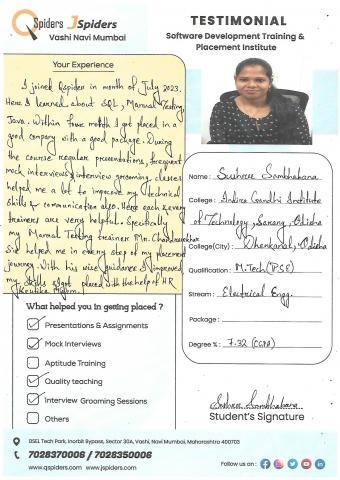 Qspiders JSpiders
Vashi Navi Mumbai
TESTIMONIAL
Software Development Training &
Placement Institute
Your Experience
I joined Qspider in month of July 2023.
Here I learned about SQL, Manual Testing,
Java. Within four month I got placed in a
good company with a good package. During
the course regular presentations, frequent
mock interviews, interview grooming classes
helped me a lot to improve my technical
skills & communication also. Here each & every
trainers are very helpful. Specifically
my Manual Testing trainer Mr. Chandrasekhar
Sir helped me in every step of my placement
journey. With his wise guidance I improved
my skills & got placed with the help of HR
Name : Sushree Sambhabana
College : Indira Gandhi Institute
of Technology, Sarang, Odisha
College(City) : Dhenkanal, Odisha
Qualification : M.Tech (PSE)
Stream : Electrical Engg.
Package :
Degree % : 7.32 (CGPA)
What helped you in getting placed ?
Presentations & Assignments
Mock Interviews
Aptitude Training
Quality teaching
Interview Grooming Sessions
Others
Sushree Sambhabana
Student's Signature
BSEL Tech Park, Inorbit Bypass, Sector 30A, Vashi, Navi Mumbai, Maharashtra 400703
7028370006 / 7028350006
www.qspiders.com www.jspiders.com
Follow us on :